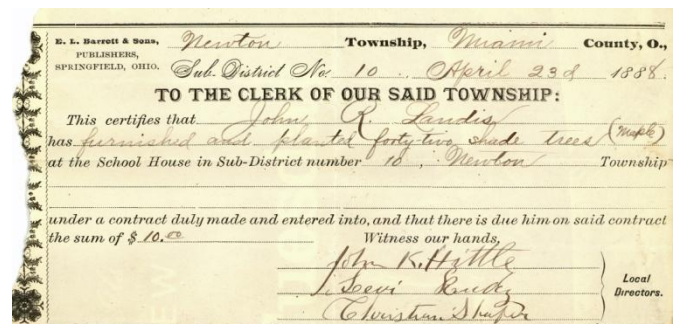 E. L. Barrett & Sons,
PUBLISHERS,
SPRINGFIELD, OHIO.
Newton Township, Miami County, O.,
Sub-District No. 10. April 23d 1888.
TO THE CLERK OF OUR SAID TOWNSHIP:
This certifies that John R. Landis
has furnished and planted forty-two shade trees (Maple)
at the School House in Sub-District number 10, Newton Township
under a contract duly made and entered into, and that there is due him on said contract
the sum of $ 10.00 Witness our hands,
John K. Hittle
Levi
Christian Shafer
Local
Directors.